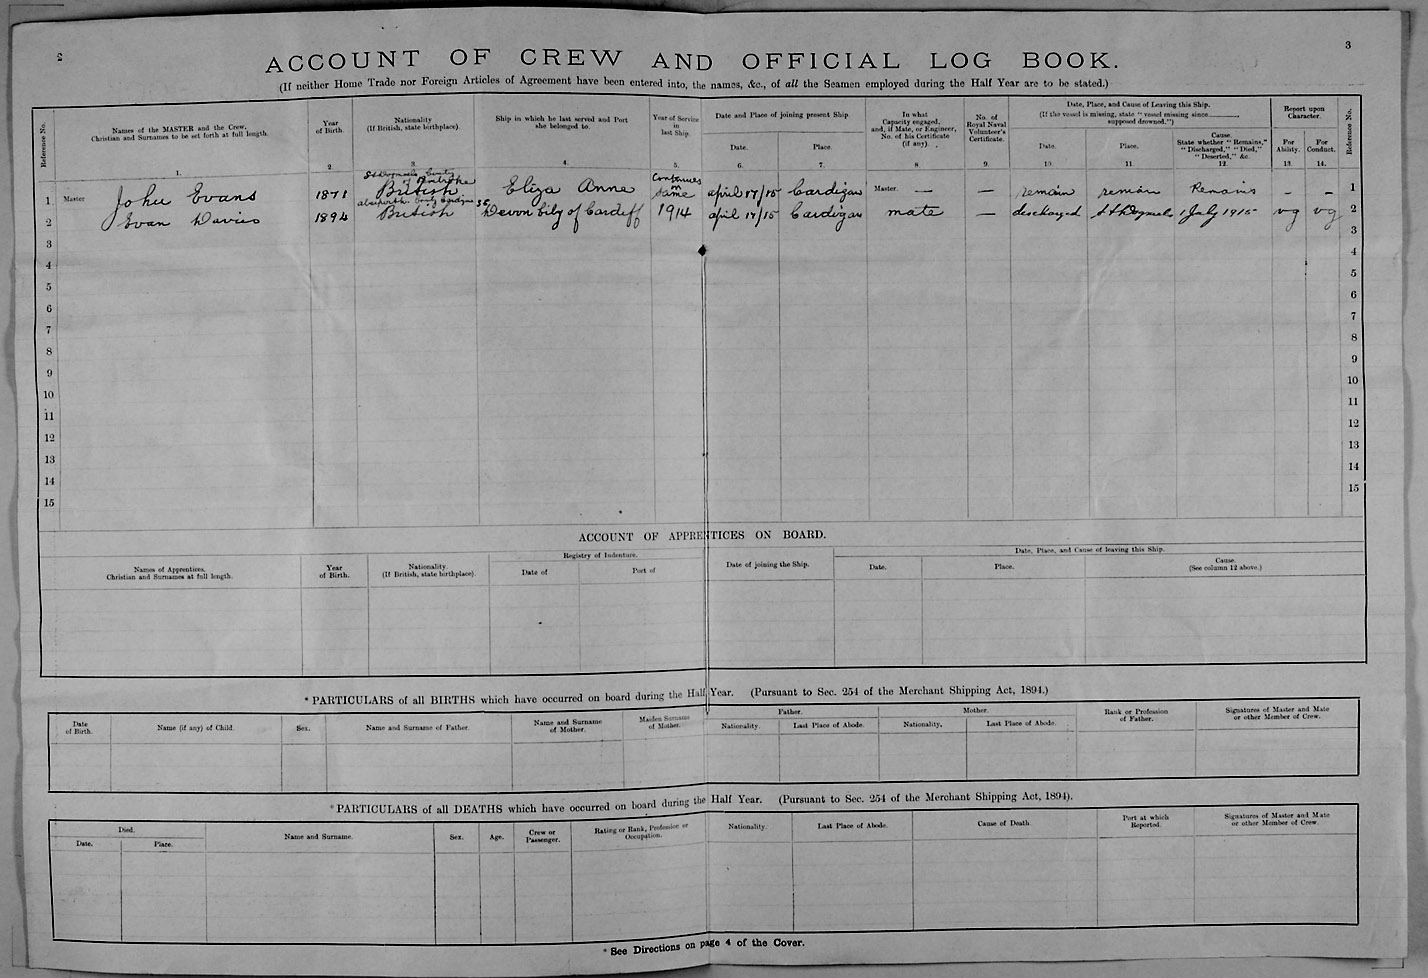 2
3
ACCOUNT OF CREW AND OFFICIAL LOG BOOK.
(If neither Home Trade nor Foreign Articles of Agreement have been entered into, the names, &c., of all the Seamen employed during the Half Year are to be stated.)
Reference No.
Names of the MASTER and the Crew, Christian and Surnames to be set forth at full length.
1.
Year of Birth.
2
Nationality (If British, state birthplace).
3.
Ship in which he last served and Port she belonged to.
4.
Year of Service in last Ship.
5.
Date and Place of joining present Ship.
Date.
6.
Place.
7.
In what Capacity engaged, and, if Mate, or Engineer, No. of his Certificate (if any).
8.
No. of Royal Naval Volunteer's Certificate.
9.
Date, Place, and Cause of Leaving this Ship.
(If the vessel is missing, state "vessel missing since supposed drowned.")
Date.
10.
Place.
11.
Cause. State whether "Remains," "Discharged," "Died," "Deserted," &c.
12.
Report upon Character.
For Ability.
13.
For Conduct.
14.
Reference No.
1 Master John Evans 1871 St Dogmaels County of Pembroke British Eliza Anne Continues in same april 17/15 Cardigan Master. — — remain remain Remains – – 1
2 Evan Davies 1894 British Devon City of Cardiff 1914 april 17/15 Cardigan mate — discharged St Dogmaels 1 July 1915 vg vg 2
3 3
4 4
5 5
6 6
7 7
8 8
9 9
10 10
11 11
12 12
13 13
14 14
15 15
ACCOUNT OF APPRENTICES ON BOARD.
Names of Apprentices. Christian and Surnames at full length.
Year of Birth.
Nationality. (If British, state birthplace).
Registry of Indenture.
Date of
Port of
Date of joining the Ship.
Date, Place, and Cause of leaving this Ship.
Date.
Place.
Cause. (See column 12 above.)
* PARTICULARS of all BIRTHS which have occurred on board during the Half Year. (Pursuant to Sec. 254 of the Merchant Shipping Act, 1894.)
Date of Birth.
Name (if any) of Child.
Sex.
Name and Surname of Father.
Name and Surname of Mother.
Maiden Surname of Mother.
Father.
Nationality.
Last Place of Abode.
Mother.
Nationality.
Last Place of Abode.
Rank or Profession of Father.
Signatures of Master and Mate or other Member of Crew.
* PARTICULARS of all DEATHS which have occurred on board during the Half Year. (Pursuant to Sec. 254 of the Merchant Shipping Act, 1894).
Died.
Date.
Place.
Name and Surname.
Sex.
Age.
Crew or Passenger.
Rating or Rank, Profession or Occupation.
Nationality.
Last Place of Abode.
Cause of Death.
Port at which Reported.
Signatures of Master and Mate or other Member of Crew.
* See Directions on page 4 of the Cover.